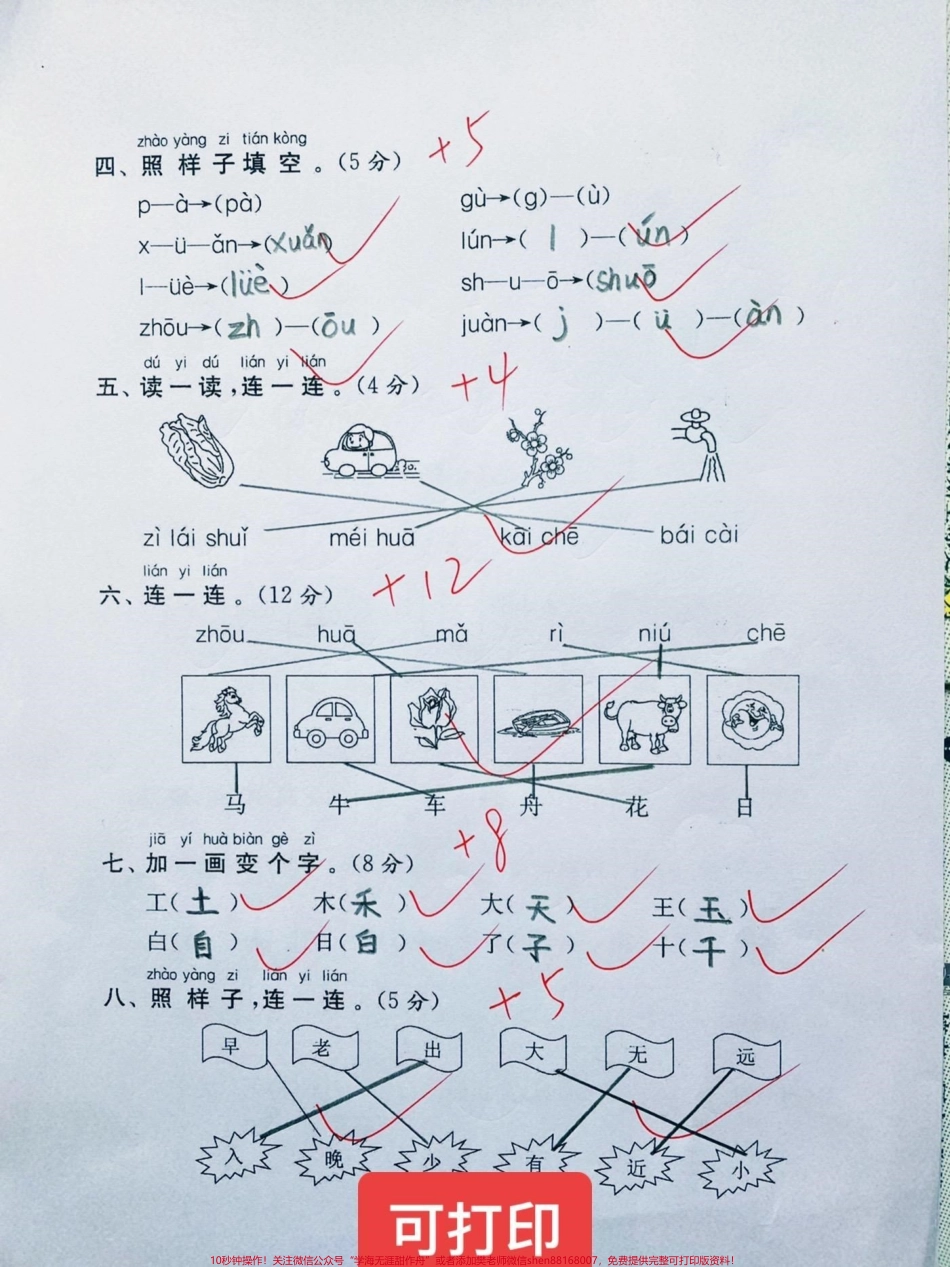 zhào yàng zi tián kòng
四、照样子填空。(5分) +5
p—à→(pà) gù→(g)—(ù)
x—ü—ǎn→(xuǎn) lún→( l )—( ún )
l—üè→(lüè) sh—u—ō→(shuō)
zhōu→( zh )—( ōu ) juàn→( j )—( ü )—( àn )
dú yi dú lián yi lián
五、读一读,连一连。(4分) +4
zì lái shuǐ méi huā kāi chē bái cài
lián yi lián
六、连一连。(12分) +12
zhōu huā mǎ rì niú chē
马 牛 车 舟 花 日
jiā yí huà biàn gè zì
七、加一画变个字。(8分) +8
工( 土 ) 木( 禾 ) 大( 天 ) 王( 玉 )
白( 自 ) 日( 白 ) 了( 子 ) 十( 千 )
zhào yàng zi lián yi lián
八、照样子,连一连。(5分) +5
早 老 出 大 无 远
入 晚 少 有 近 小
可打印
10秒钟操作!关注微信公众号“学海无涯甜作舟”或者添加樊老师微信shen88168007,免费提供完整可打印版资料!